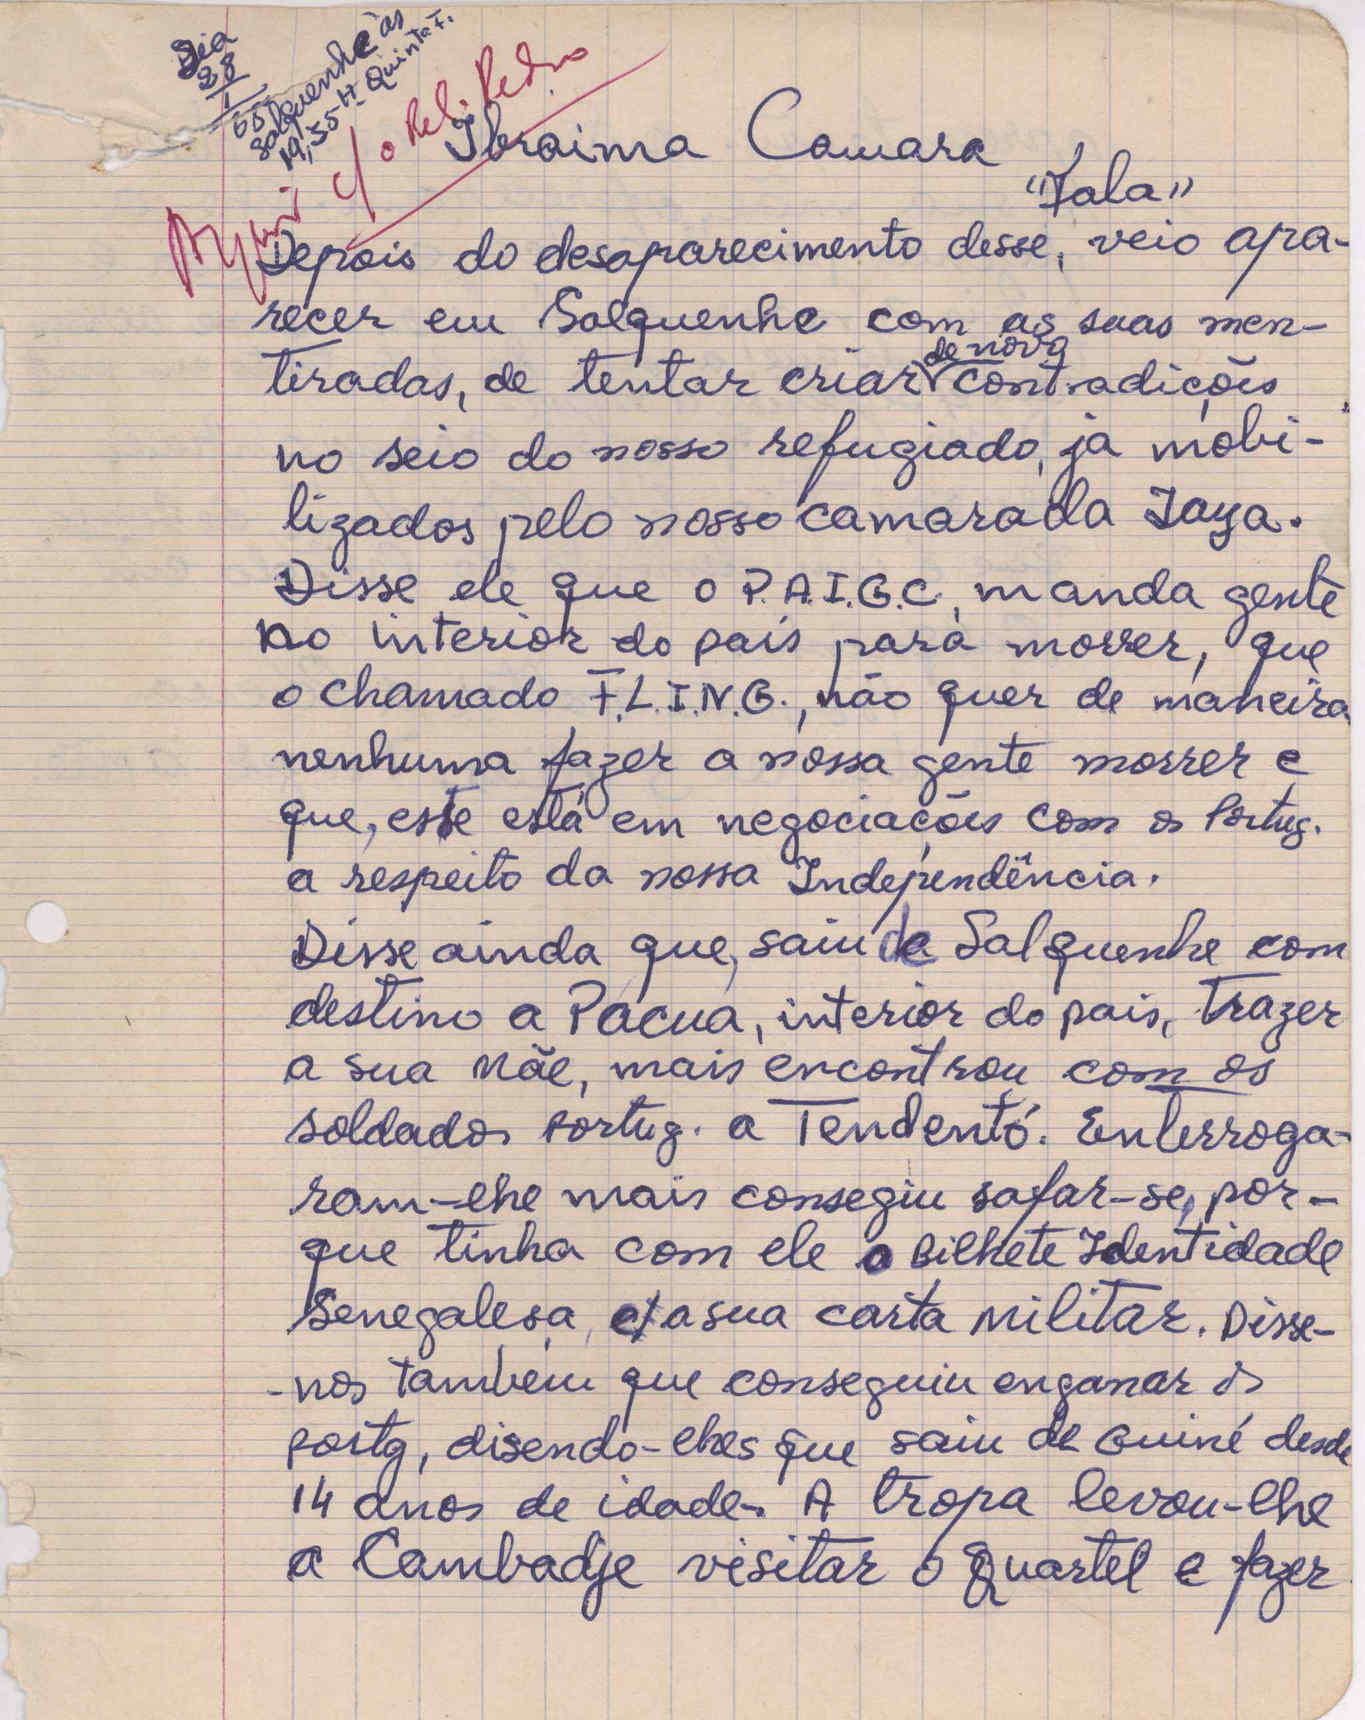 Dia
28
1
65
Salquenhe às
19,55 H Quinta F.
c/ o Rel. Pedro
Ibraima Camara
"Fala"
Depois do desaparecimento desse, veio apa-
recer em Salquenhe com as suas men-
tiradas, de tentar criar de novo contradições
no seio do nosso refugiado, já mobi-
lizados pelo nosso camarada Jaya.
Disse ele que o P.A.I.G.C, manda gente
no interior do país para morrer, que
o chamado F.L.I.N.G., não quer de maneira
nenhuma fazer a nossa gente morrer e
que, este está em negociações com os Portug.
a respeito da nossa Independência.
Disse ainda que, saiu de Salquenhe com
destino a Pacua, interior do pais, trazer
a sua Mãe, mais encontrou com os
soldados portug. a Tendentó. Enterroga-
ram-lhe mais consegiu safar-se, por-
que tinha com ele o Bilhete Identidade
Senegalesa, e a sua carta militar. Disse-
-nos também que conseguiu enganar os
portg, disendo-lhes que saiu de Guiné desde
14 anos de idade. A tropa levou-lhe
a Cambadje visitar o Quartel e fazer